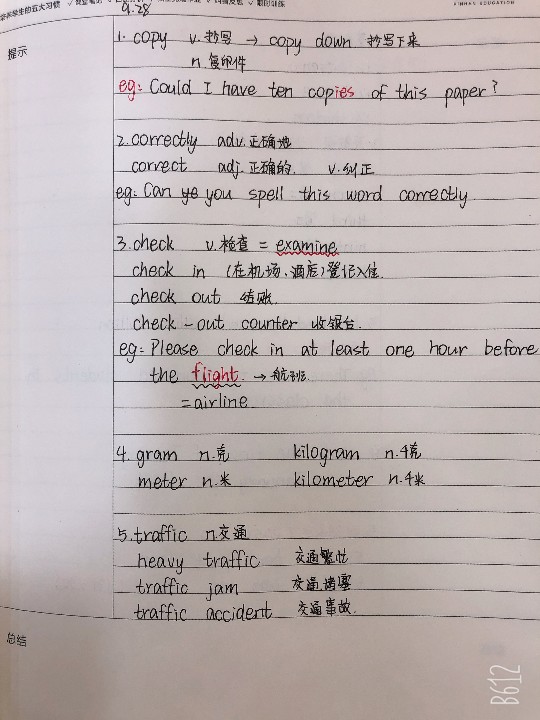 学养学生的五大习惯 ✓
✓ 限时训练
XINHAN EDUCATION
9.28
提示
1. copy v.抄写 → copy down 抄写下来
n.复印件
eg: Could I have ten copies of this paper?
2.correctly adv.正确地
correct adj.正确的. v.纠正
eg: Can ye you spell this word correctly
3.check v.检查 = examine
check in (在机场、酒店)登记入住.
check out 结账.
check-out counter 收银台.
eg: Please check in at least one hour before
the flight. → 航班
=airline
4. gram n.克 kilogram n.千克
meter n.米 kilometer n.千米
5.traffic n交通
heavy traffic 交通繁忙
traffic jam 交通堵塞
traffic accident 交通事故.
总结
B612